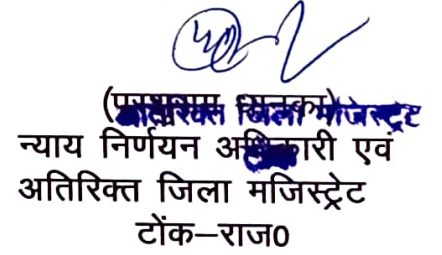 जिला मजिस्ट्रेट
न्याय निर्णयन अधिकारी एवं
अतिरिक्त जिला मजिस्ट्रेट
टोंक–राज0